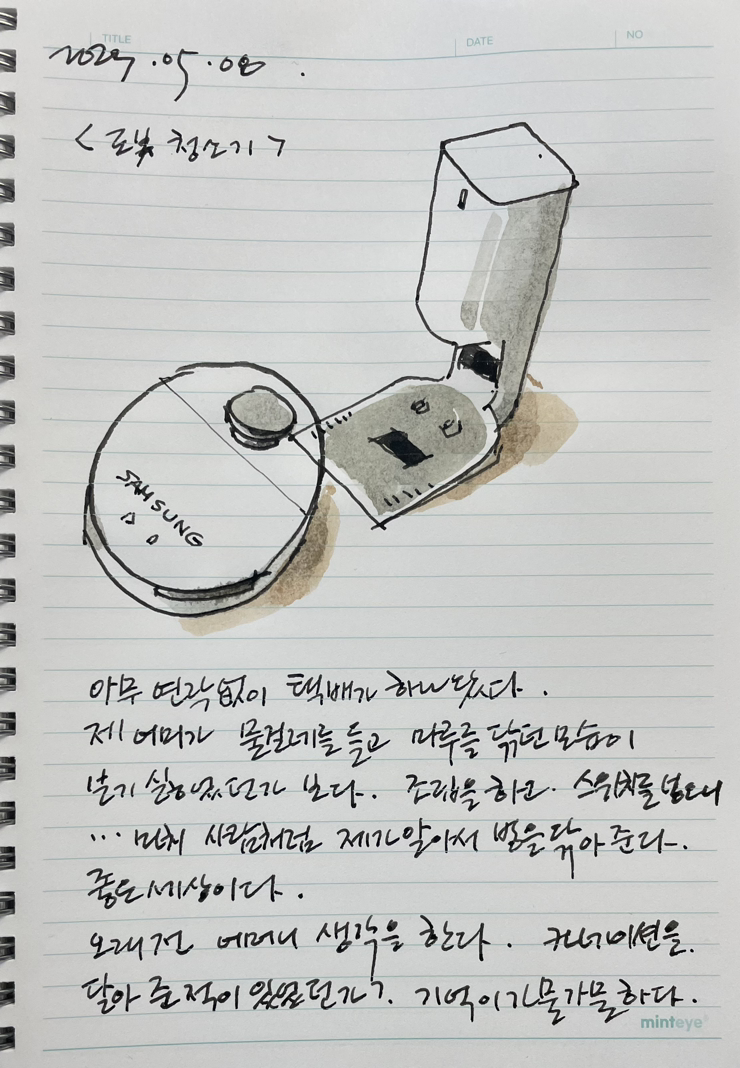 TITLE DATE NO
2024.05.08.
<로봇 청소기>
SAMSUNG
아무 연락없이 택배가 하나 왔다.
제 어머가 물걸레를 들고 마루를 닦던 모습이
보기 싫었던가 보다. 조립을 하고. 스위치를 넣으니
... 마치 사람처럼 제가 알아서 방을 닦아 준다.
좋은 세상이다.
오래전 어머니 생각을 한다. 카네이션을.
달아 준 적이 있었던가?. 기억이 가물가물하다.
minteye